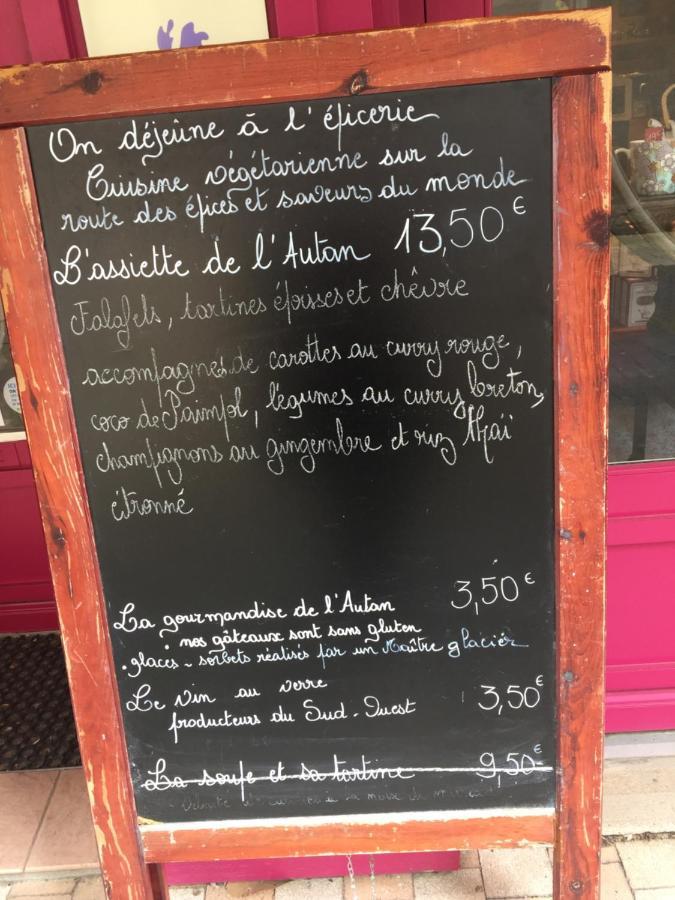 On déjeûne à l'épicerie
Cuisine végétarienne sur la
route des épices et saveurs du monde
L'assiette de l'Autan 13,50€
Falafels, tartines époisses et chèvre
accompagnés de carottes au curry rouge,
coco de Paimpol, légumes au curry breton,
champignons au gingembre et riz thaï
citronné
La gourmandise de l'Autan 3,50€
• nos gâteaux sont sans gluten
• glaces - sorbets réalisés par un Maître glacier
Le vin au verre 3,50€
producteurs du Sud-Ouest
La soupe et sa tartine 9,50€